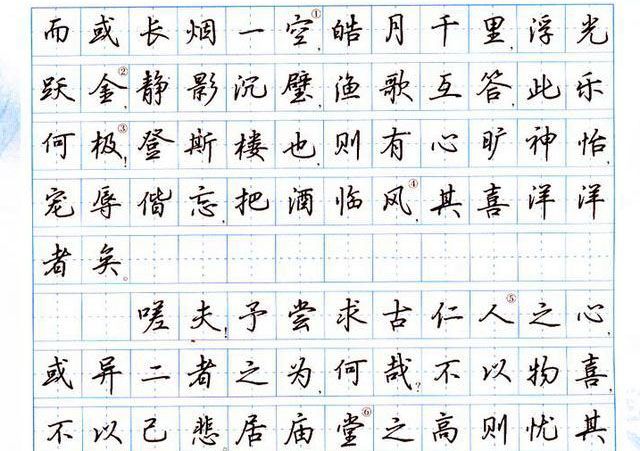 而或长烟一空①,皓月千里,浮光
跃金②,静影沉璧,渔歌互答,此乐
何极③!登斯楼也,则有心旷神怡,
宠辱偕忘,把酒临风④,其喜洋洋
者矣。
嗟夫!予尝求古仁人⑤之心,
或异二者之为,何哉?不以物喜,
不以己悲,居庙堂⑥之高则忧其